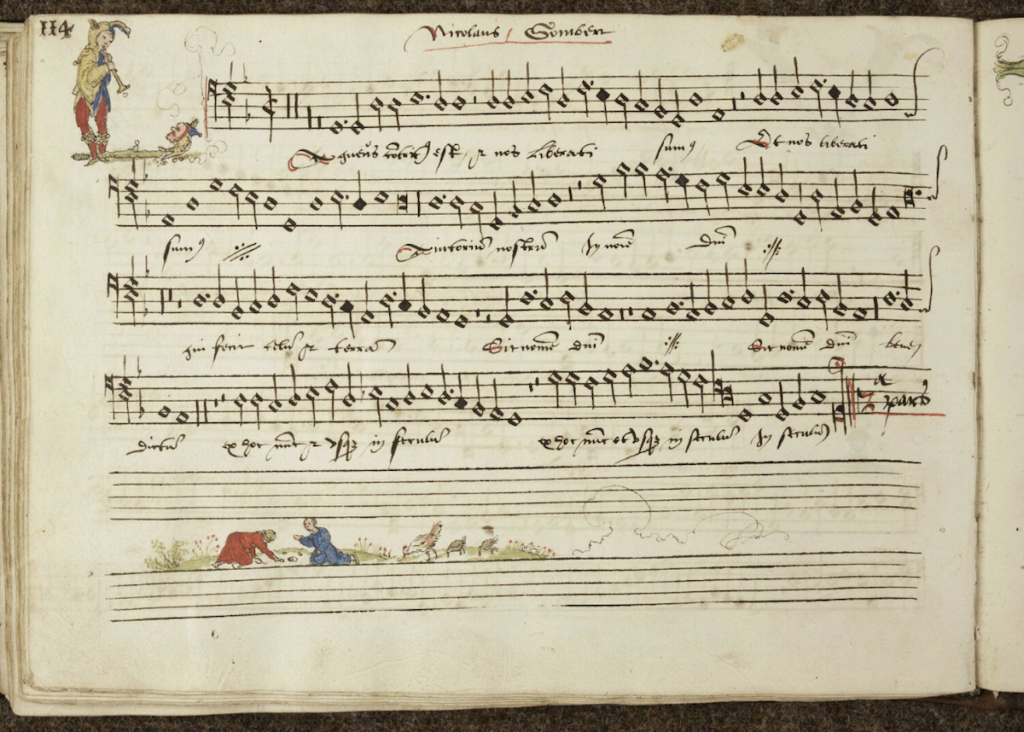 114
Nicolaus Gombert
Laqueus contritus est, et nos liberati sumus Et nos liberati
sumus Adiutorium nostrum In nomine Dni
qui fecit celum et terram Sit nomen dni Sit nomen dni bene
dictum ex hoc nunc et usque in seculum ex hoc nunc et usque in seculum In seculum
2a pars